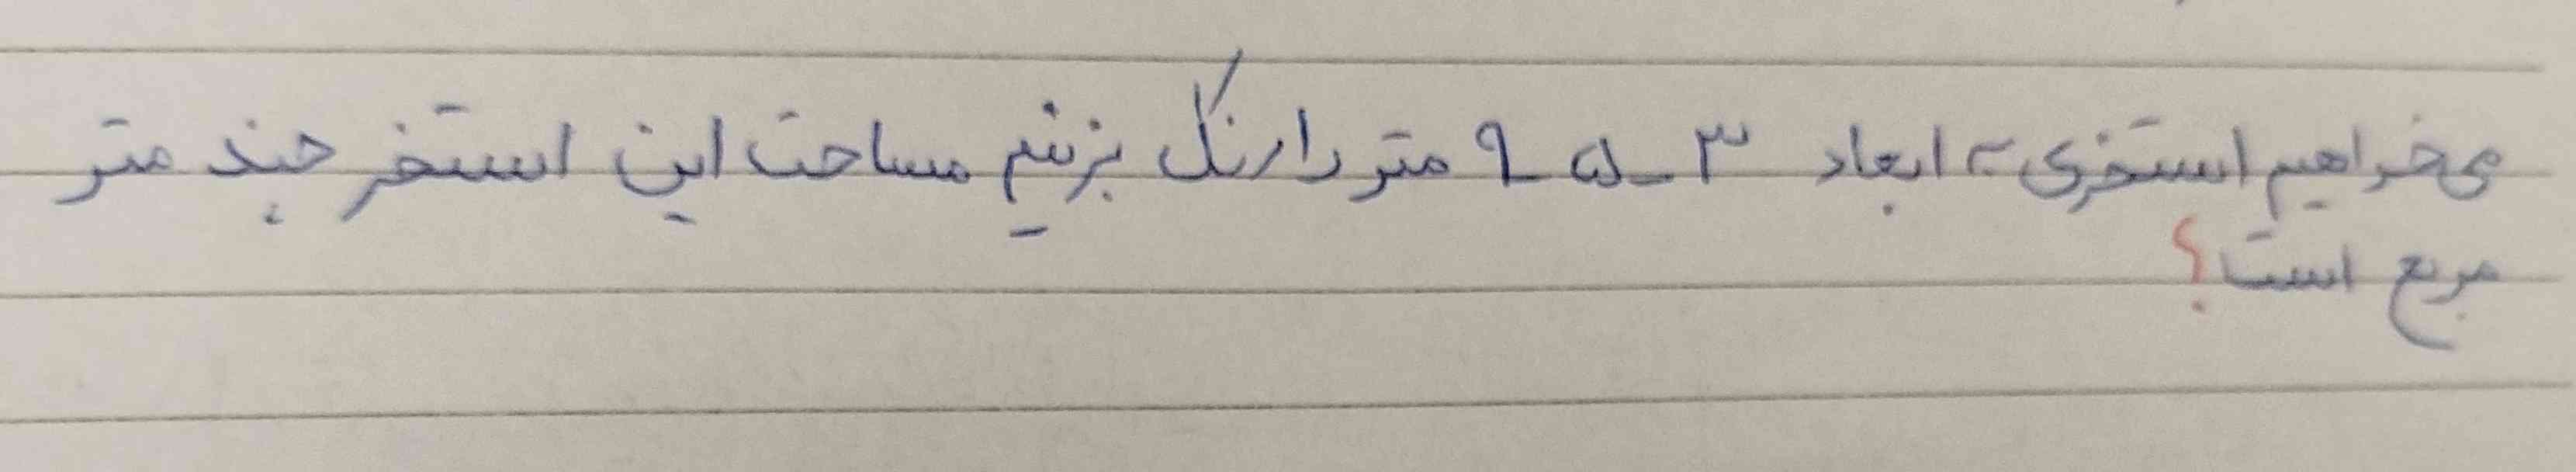 می خواهیم استخری به ابعاد ۳ـ۵ـ۹ متر را رنگ بزنیم مساحت این استخر چند متر
مربع است؟